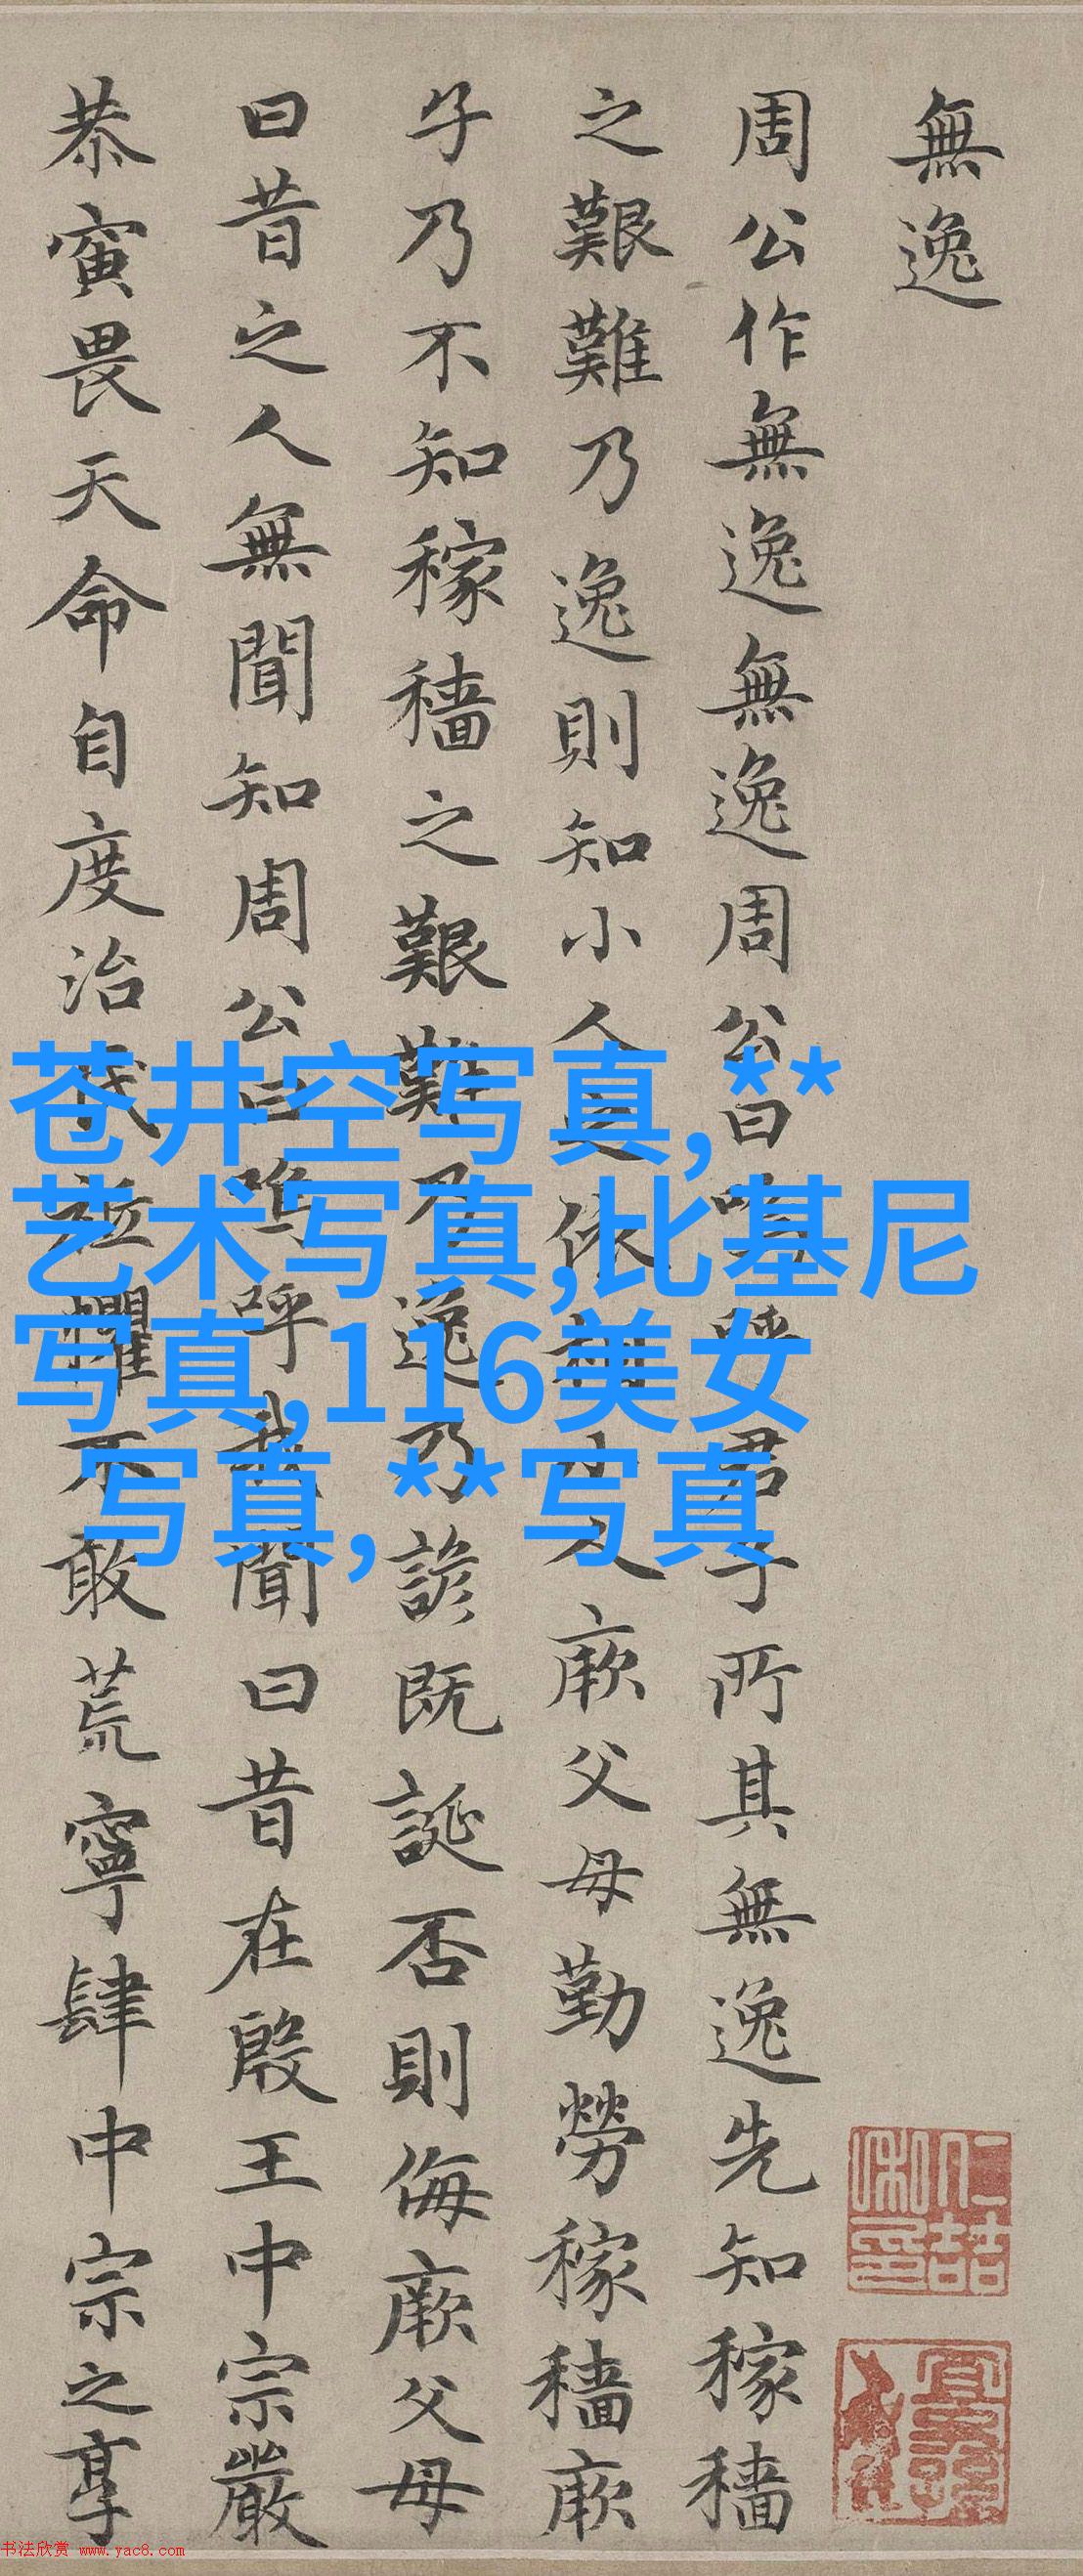 無逸
周公作無逸無逸周公曰嗚呼君子所其無逸先知稼穡
之艱難乃逸則知小人之依相小人厥父母勤勞稼穡厥
子乃不知稼穡之艱難乃逸乃諺既誕否則侮厥父母
曰昔之人無聞知周公曰嗚呼我聞曰昔在殷王中宗嚴
恭寅畏天命自度治民祗懼不敢荒寧肆中宗之享
苍井空写真,**
艺术写真,比基尼
写真,116美女
写真,**写真
书法欣赏 www.yac8.com